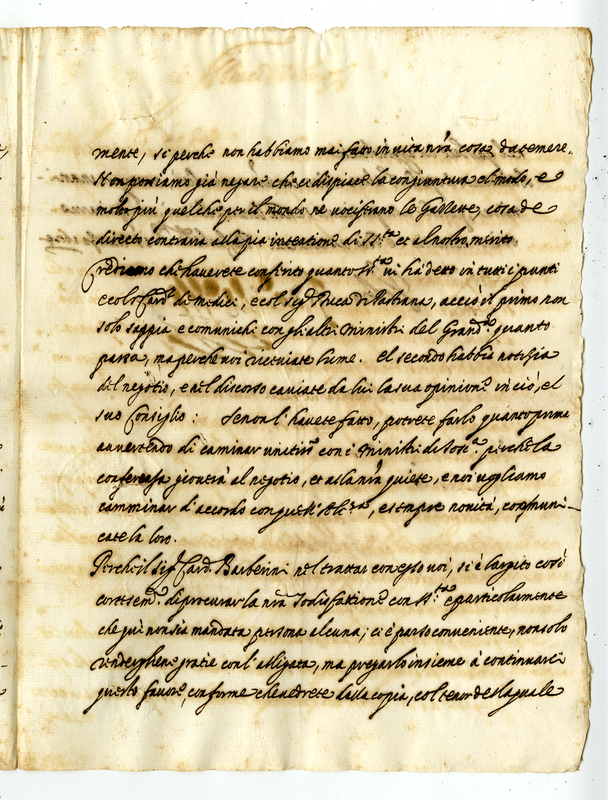 mente, si perche non habbiamo mai fatto in vita nr̃a cosa da temere.
Non possiamo già negare che ci dispiace la congiuntura el modo, e
molto più quel che per il mondo ne vociferano le Gazzette, cosa de
directo contraria alla pia intentione di S. S.tà et al nostro merito.
Crediamo che haverete conferito quanto S. S.tà vi hà detto in tutti i punti
e col s.r Card. de Medici, e col sig.r Duca di Pastrana, acciò il primo non
solo sappia e comunichi con gli altri Ministri del Grand. quanto
passa, ma perche voi riceviate lume. el secondo habbia notizia
del negotio, e nel discorso caviate da lui la sua opinione in ciò, el
suo Consiglio: Se non l'havete fatto, potrete farlo quanto prima
avvertendo di caminar unitissº con i Ministri di perche la
conferenza gioverà al negotio, et alla nr̃a quiete, e noi vogliamo
camminar d'accordo con quest' Alt.za, e sempre novità, communi-
catela loro.
Perche il Sig.r Card. Barberini nel trattar con esso voi, si è largito così
cortesem.te di procurar la nr̃a sodisfattione con S. S.tà e particolarmente
che quì non sia mandata persona alcuna; ci è parso conveniente, non solo
renderghene gratie con l'alligata, ma pregarlo insieme à continuarci
questo favore, conforme che vedrete dalla copia, col tenor della quale